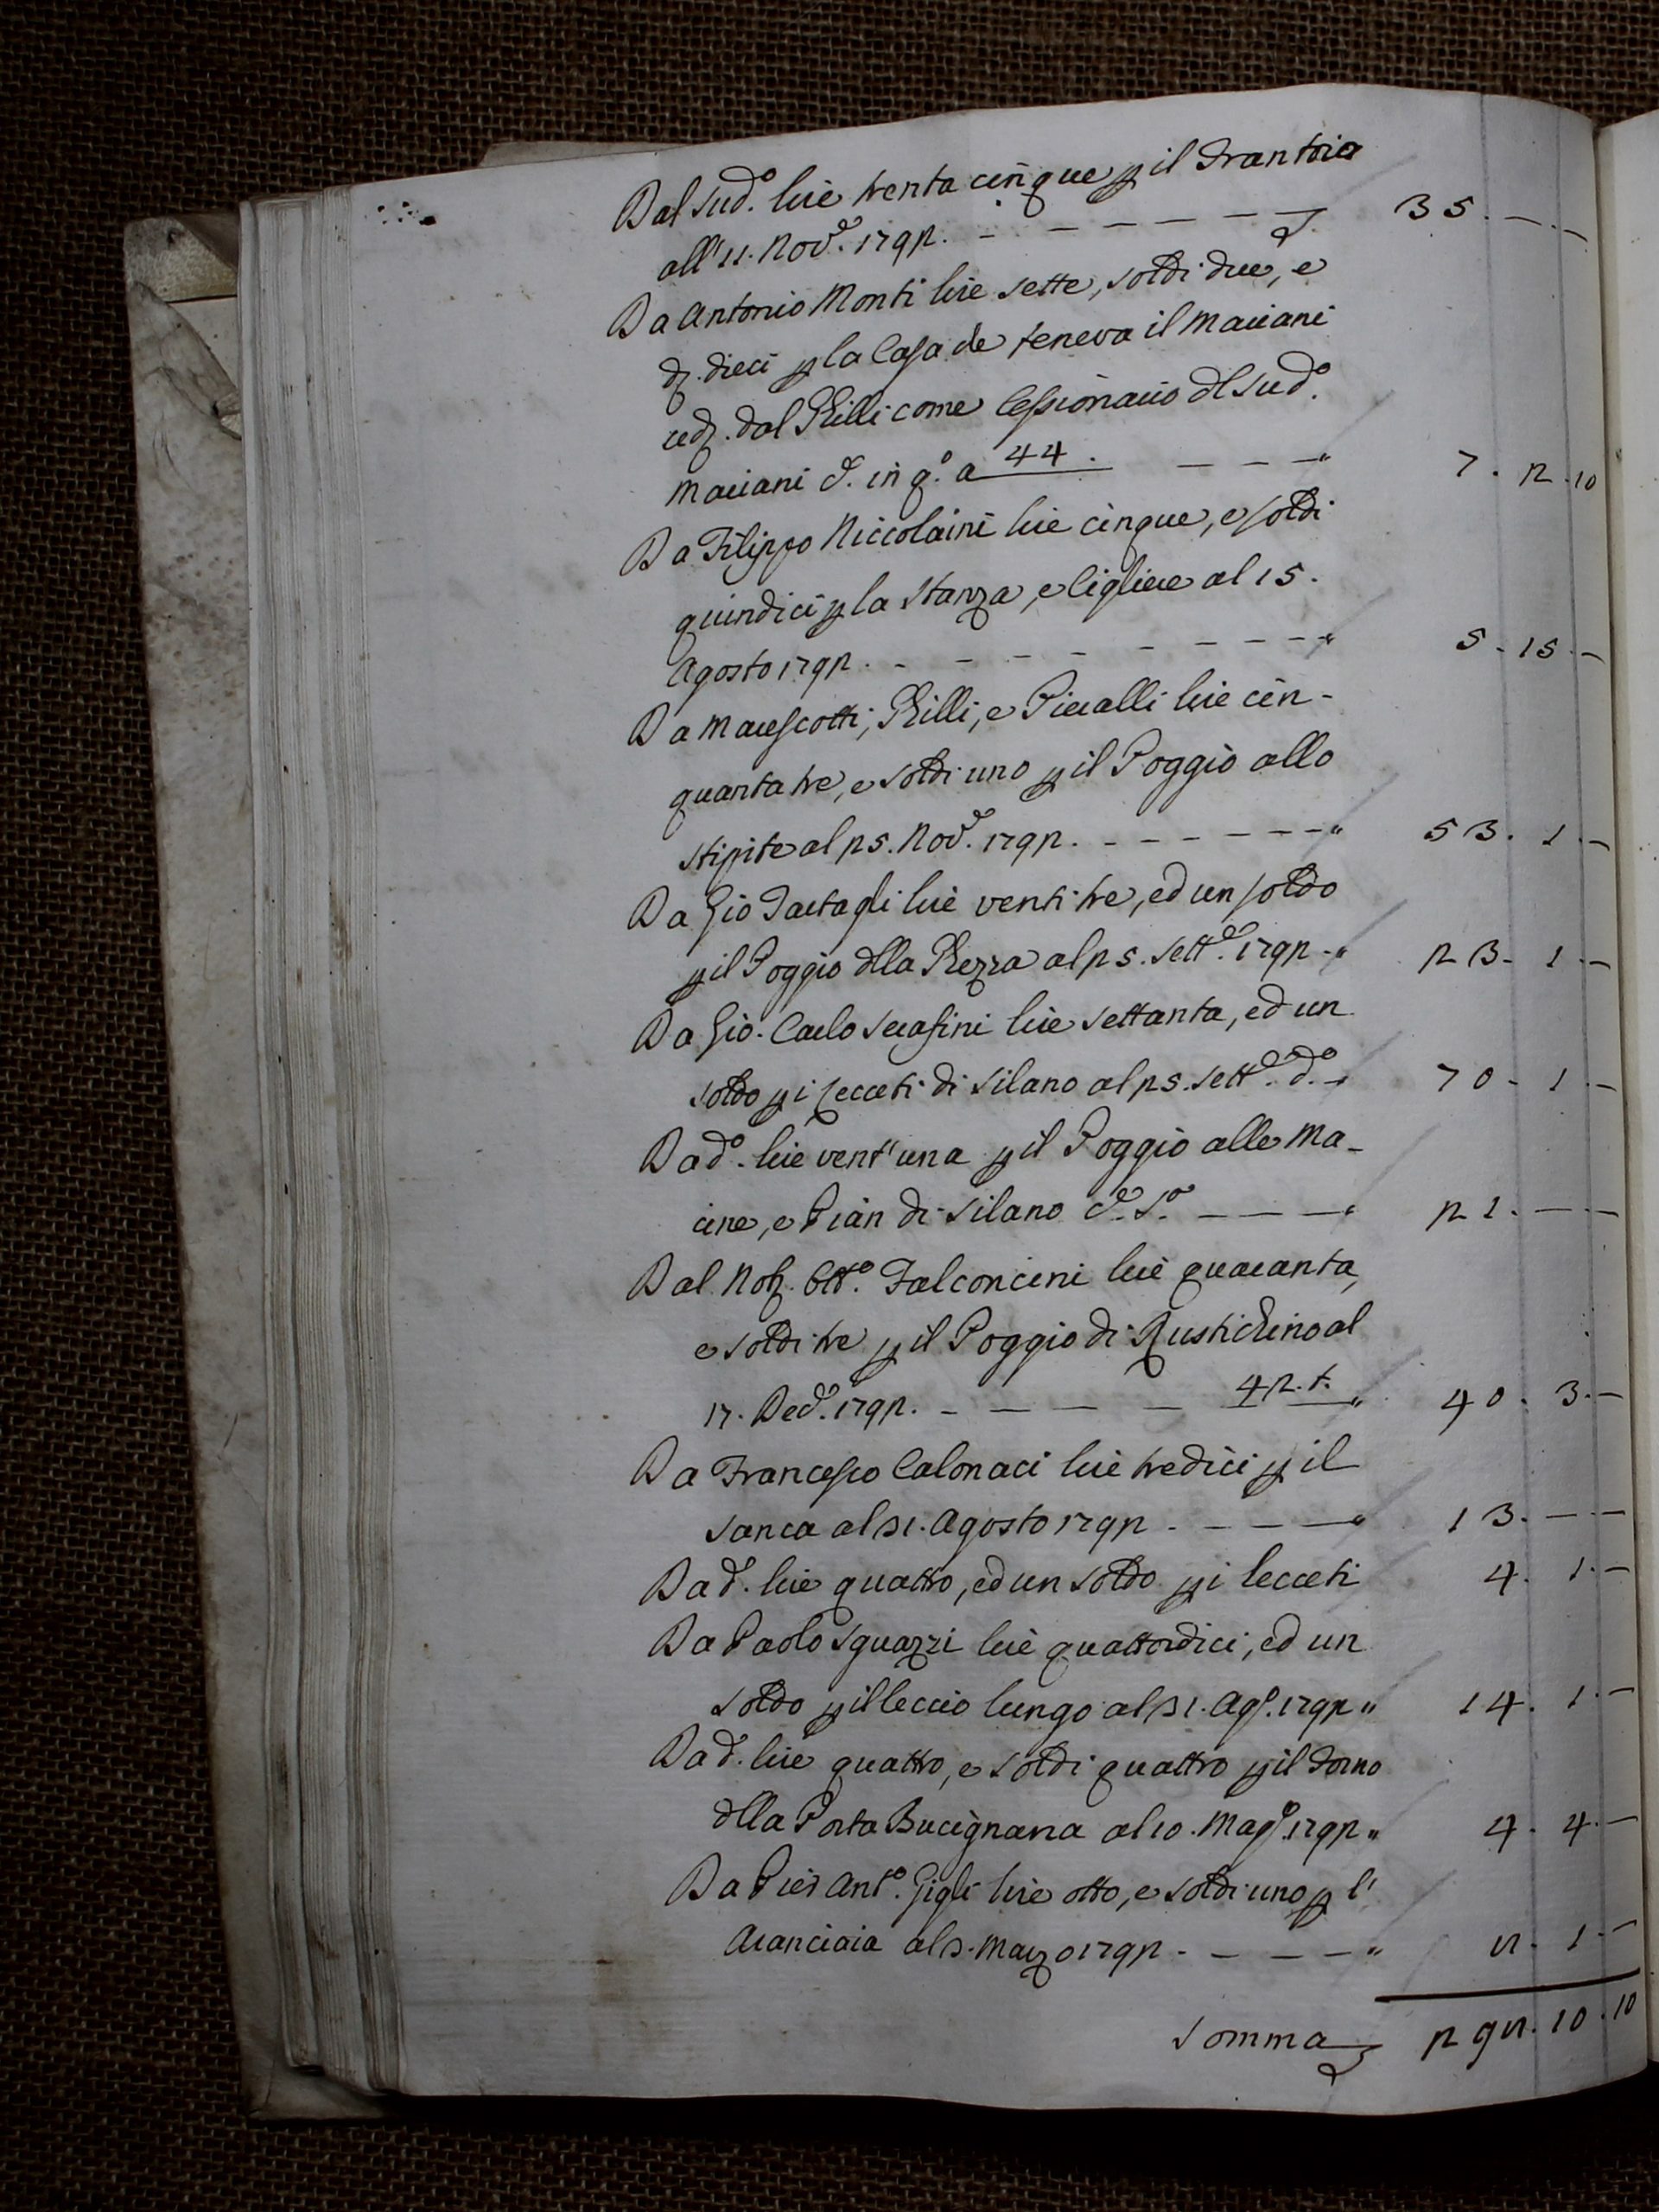 Dal sud.º lire trenta cinque p il Frantoio
all'11. Nov.e 1792. - - - - - - - 35. - . -
Da Antonio Monti lire sette, soldi due, e
d. dieci p la Casa che teneva il Mariani
ed. dal Chilli come Cessionario dl sud.º
Mariani d. in q.º a 44. - - - " 7. 2. 10
Da Filippo Niccolaini lire cinque, e soldi
quindici p la Stanza, e Cigliere al 15.
Agosto 1792. - - - - - - - - " 5. 15. -
Da Marescotti, Chilli, e Pieralli lire cin-
quanta tre, e soldi uno p il Poggio allo
Stipite al 25. Nov.e 1792. - - - - - - " 53. 1. -
Da Gio Tartagli lire venti tre, ed un soldo
p il Poggio dlla Chezza al 25. Sett.e 1792 - " 23. 1. -
Da Gio. Carlo Serafini lire settanta, ed un
soldo p i Lecceti di Silano al 25. Sett.e d.º - " 70. 1. -
Da d.º lire vent'una p il Poggio alle Ma-
cine, e Pian di Silano d. S.º - - - " 21. - . -
Dal Nob. Ott.º Falconcini lire quaranta,
e soldi tre p il Poggio di Rustichino al
17. Dec.e 1792. - - - - 42. t. " 40. 3. -
Da Francesco Calonaci lire tredici p il
Sanca al 31. Agosto 1792 - - - - " 13. - . -
Da d.º lire quattro, ed un soldo p i lecceti 4. 1. -
Da Paolo Sguazzi lire quattordici, ed un
soldo p il leccio lungo al 31. Ag.º 1792 " 14. 1. -
Da d.º lire quattro, e soldi quattro p il Forno
dlla Porta Bucignana al 10. Mag.º 1792 " 4. 4. -
Da Pier Ant.º Gigli lire otto, e soldi uno p l'
Aranciaia al 3. Marzo 1792 - - - - " 8. 1. -
Somma 298. 10. 10